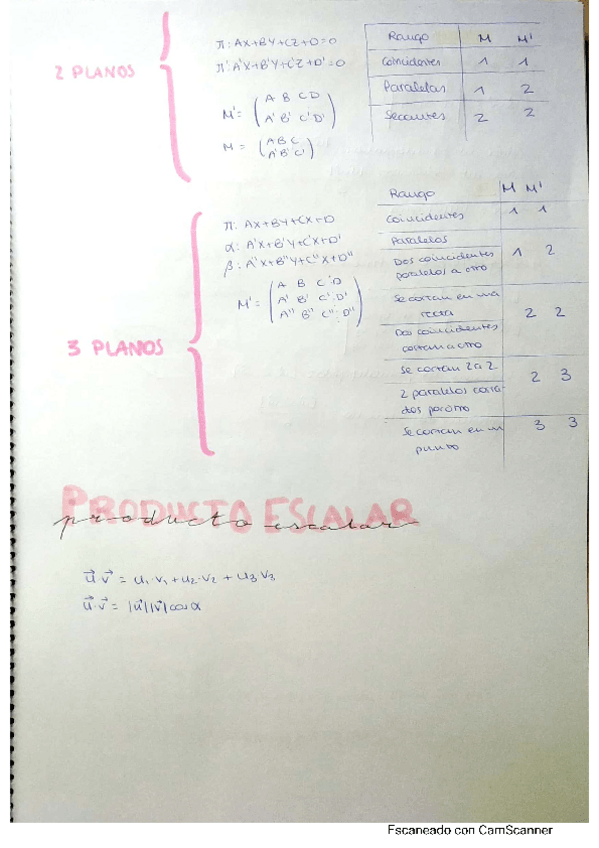 2 PLANOS
π: AX+BY+CZ+D=0
π': A'X+B'Y+C'Z+D'=0
M' = ( A B C D
A' B' C' D' )
M = ( A B C
A' B' C' )
Rango M M'
Coincidentes 1 1
Paralelas 1 2
Secantes 2 2
3 PLANOS
π: AX+BY+CX+D
α: A'X+B'Y+C'X+D'
β: A'X+B''Y+C''X+D''
M' = ( A B C D
A' B' C' D'
A'' B'' C'' D'' )
Rango M M'
Coincidentes 1 1
Paralelos
Dos coincidentes
paralelos a otro
1 2
Se cortan en una
recta
Dos coincidentes
cortan a otro
2 2
Se cortan 2 a 2
2 paralelos corta-
dos por otro
2 3
Se cortan en un
punto
3 3
PRODUCTO ESCALAR
producto escalar
u⃗·v⃗ = u₁·v₁+u₂·v₂+u₃v₃
u⃗·v⃗ = |u⃗||v⃗|cosα
Escaneado con CamScanner